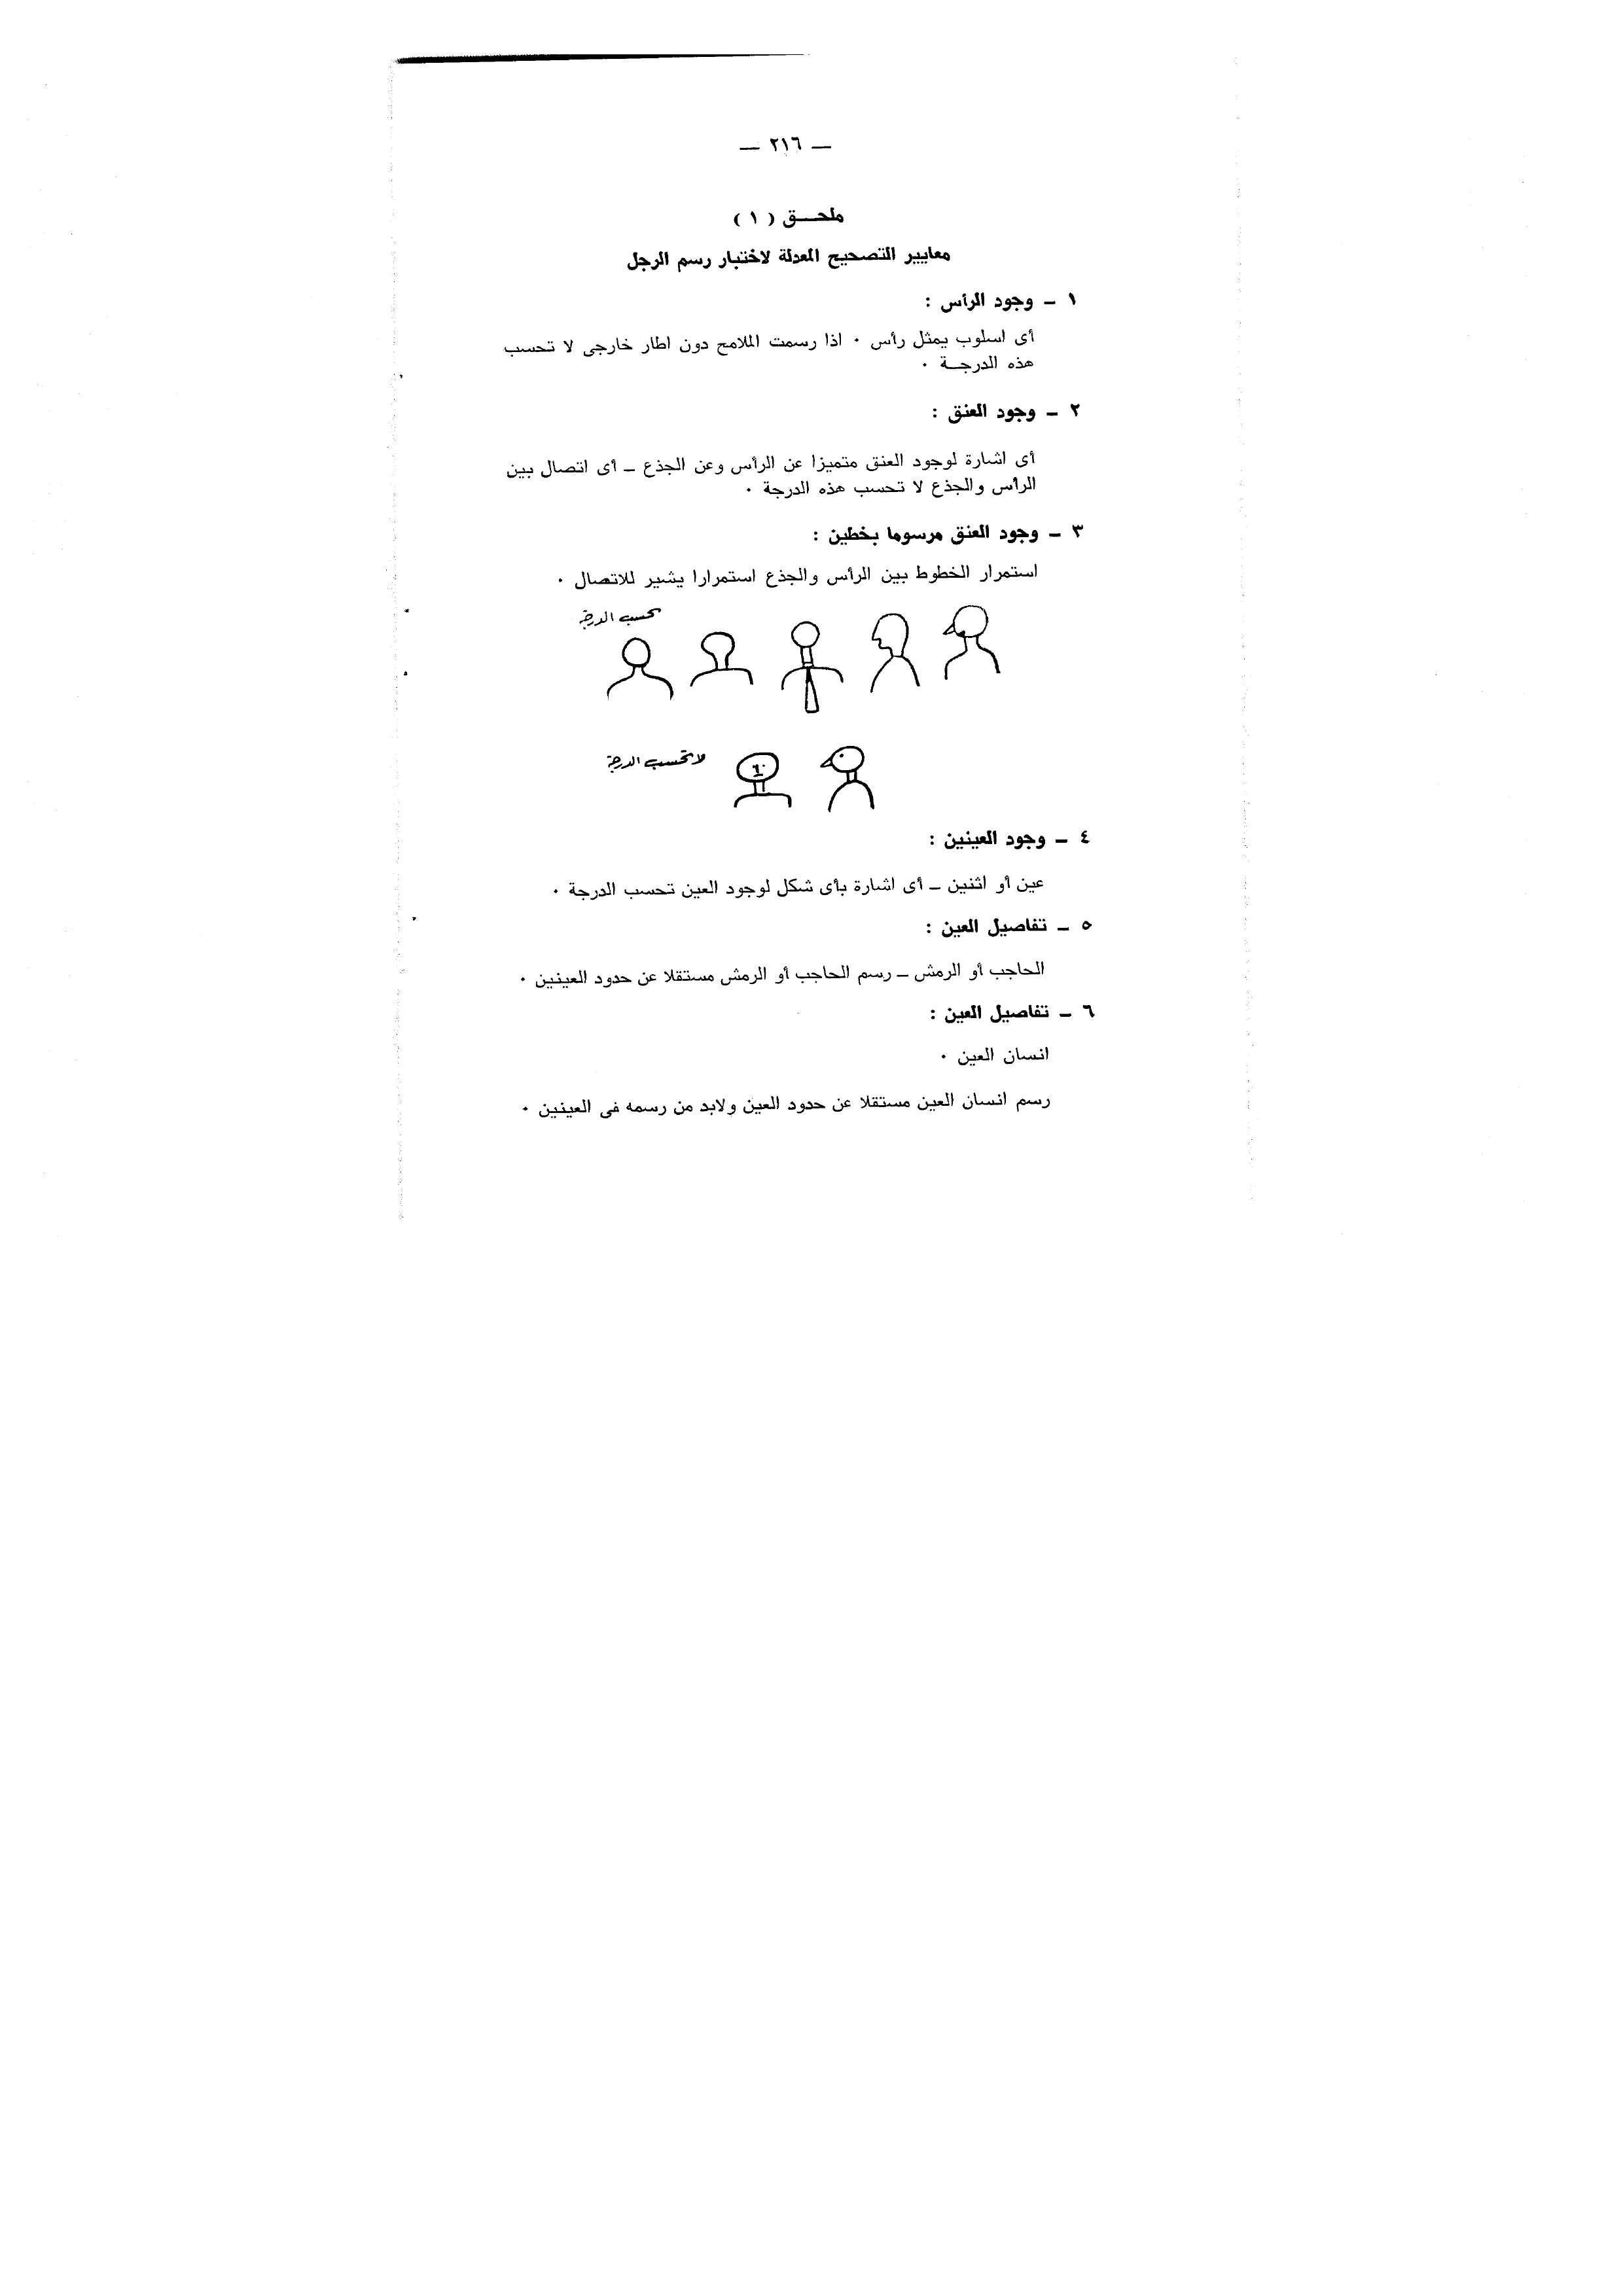 — ٢١٦ —
ملحـــق ( ١ )
معايير التصحيح المعدلة لاختبار رسم الرجل
١ ـ وجود الرأس :
أى اسلوب يمثل رأس ٠ اذا رسمت الملامح دون اطار خارجى لا تحسب
هذه الدرجــة ٠
٢ ـ وجود العنق :
أى اشارة لوجود العنق متميزا عن الرأس وعن الجذع ـ أى اتصال بين
الرأس والجذع لا تحسب هذه الدرجة ٠
٣ ـ وجود العنق مرسوما بخطين :
استمرار الخطوط بين الرأس والجذع استمرارا يشير للاتصال ٠
تحسب الدرجة
لا تحسب الدرجة
٤ ـ وجود العينين :
عين أو اثنين ـ أى اشارة بأى شكل لوجود العين تحسب الدرجة ٠
٥ ـ تفاصيل العين :
الحاجب أو الرمش ـ رسم الحاجب أو الرمش مستقلا عن حدود العينين ٠
٦ ـ تفاصيل العين :
انسان العين ٠
رسم انسان العين مستقلا عن حدود العين ولابد من رسمه فى العينين ٠